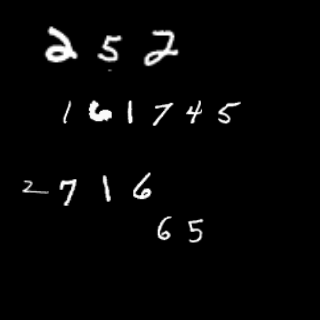 252
161745
2716
65